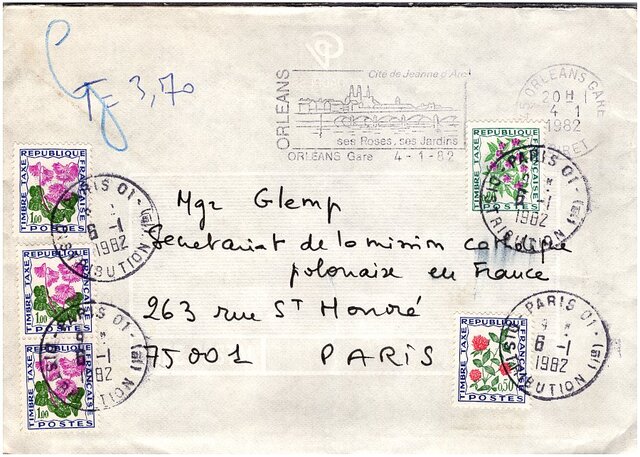 T = 3,70
ORLEANS
Cité de Jeanne d'Arc
ses Roses, ses Jardins
ORLEANS Gare 4-1-82
ORLEANS GARE
20 H
4-1
1982
LOIRET
REPUBLIQUE FRANÇAISE
TIMBRE TAXE
POSTES
PARIS 01
6-1
1982
DISTRIBUTION
REPUBLIQUE FRANÇAISE
TIMBRE TAXE
1,00
POSTES
PARIS 01
6-1
1982
DISTRIBUTION
Mgr Glemp
Secretariat de la mission catholique
polonaise en France
263 rue St Honoré
75001 PARIS
REPUBLIQUE FRANÇAISE
TIMBRE TAXE
1,00
POSTES
REPUBLIQUE FRANÇAISE
TIMBRE TAXE
1,00
POSTES
PARIS 01
REPUBLIQUE FRANÇAISE
TIMBRE TAXE
0,50
POSTES
PARIS 01
6-1
1982
DISTRIBUTION